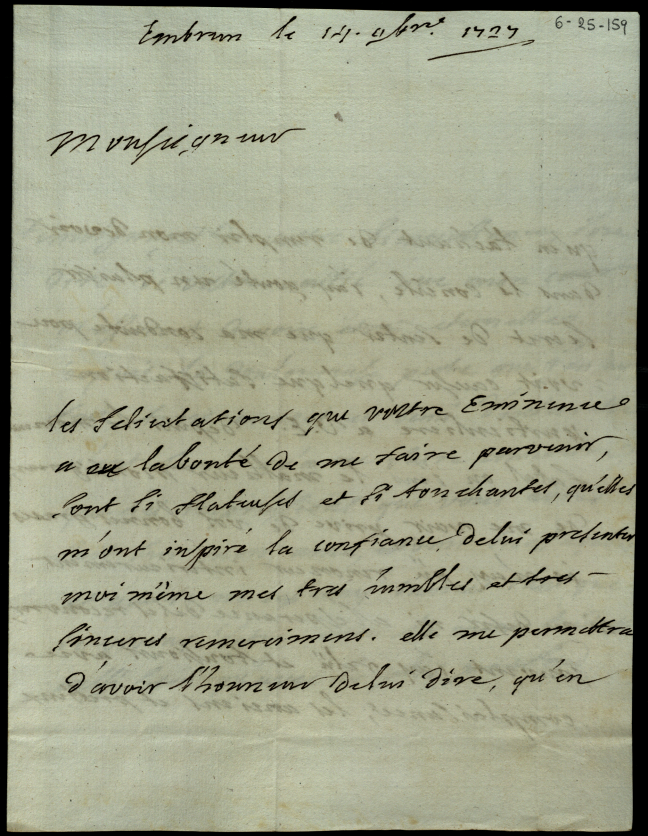 6-25-159
Embrun le 14. 9bre. 1727
Monseigneur
les felicitations que vostre Eminence
a eu labonté de me faire parvenir,
sont si flateuses et si touchantes, qu'elles
m'ont inspiré la confiance delui presenter
moi même mes tres humbles et tres-
sinceres remercimens. elle me permettra
d'avoir l'honneur delui dire, qu'en